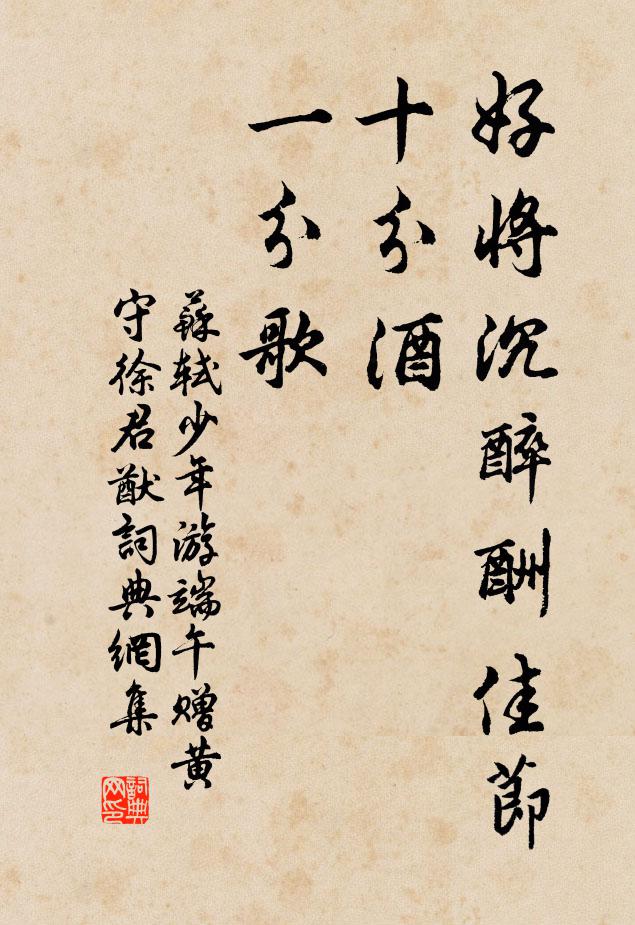 好將沉醉酬佳節
十分酒
一分歌
蘇軾少年游端午贈黄
守徐君猷詞典網集
詞典网印